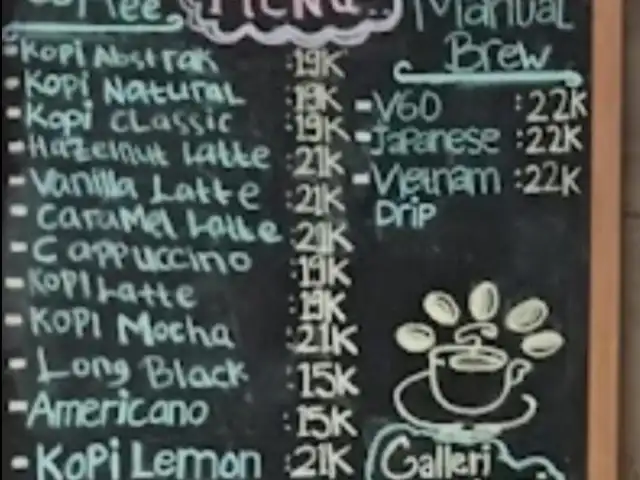 Coffee
MENU
Manual
Brew
- Kopi Abstrak : 19K
- Kopi Natural : 19K
- Kopi Classic : 19K
- Hazelnut Latte : 21K
- Vanilla Latte : 21K
- Caramel Latte : 21K
- Cappuccino : 19K
- Kopi Latte : 19K
- Kopi Mocha : 21K
- Long Black : 15K
- Americano : 15K
- Kopi Lemon : 21K
- V60 : 22K
- Japanese : 22K
- Vietnam : 22K
Drip
Galleri